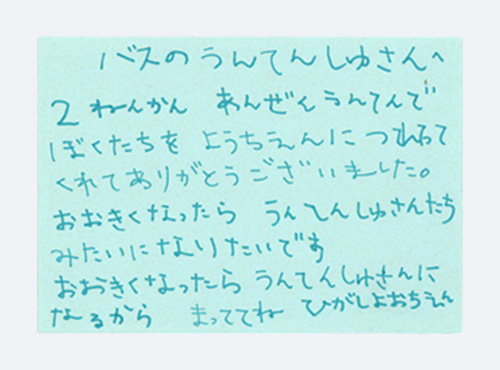 バスのうんてんしゅさんへ
2ねんかん あんぜんうんてんで
ぼくたちを ようちえんに つれてって
くれてありがとうございました。
おおきくなったら うんてんしゅさんたち
みたいになりたいです
おおきくなったら うんてんしゅさんに
なるから まっててね ひがしよおちえん